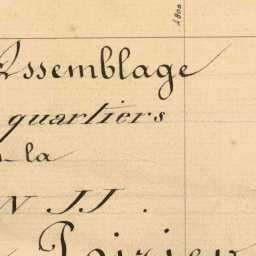 Assemblage
quartiers
la
N II.
Poirier